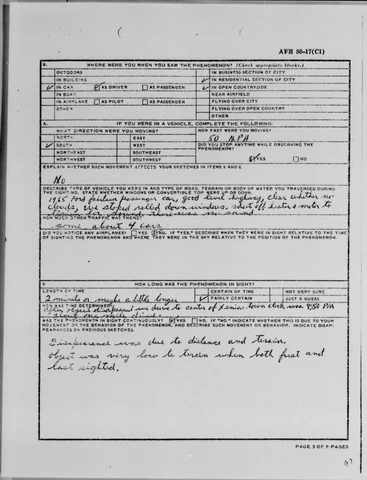 AFR 80-17(C1)
8. WHERE WERE YOU WHEN YOU SAW THE PHENOMENON? (Check appropriate blocks.)
OUTDOORS
IN BUSINESS SECTION OF CITY
IN BUILDING
✓ IN RESIDENTIAL SECTION OF CITY
✓ IN CAR ✓ AS DRIVER AS PASSENGER
✓ IN OPEN COUNTRYSIDE
IN BOAT
NEAR AIRFIELD
IN AIRPLANE AS PILOT AS PASSENGER
FLYING OVER CITY
OTHER
FLYING OVER OPEN COUNTRY
OTHER
A. IF YOU WERE IN A VEHICLE, COMPLETE THE FOLLOWING:
WHAT DIRECTION WERE YOU MOVING?
HOW FAST WERE YOU MOVING?
NORTH EAST
50 MPH
✓ SOUTH WEST
DID YOU STOP ANYTIME WHILE OBSERVING THE PHENOMENON?
NORTHEAST SOUTHEAST
NORTHWEST SOUTHWEST
✓ YES NO
EXPLAIN WHETHER SUCH MOVEMENT AFFECTS YOUR SKETCHES IN ITEMS 5 AND 6.
No
DESCRIBE TYPE OF VEHICLE YOU WERE IN AND TYPE OF ROAD, TERRAIN OR BODY OF WATER YOU TRAVERSED DURING
THE SIGHTING. STATE WHETHER WINDOWS OR CONVERTIBLE TOP WERE UP OR DOWN.
1965 Ford fairlane passenger car, good level highway, clear whether no
clouds, We stoped rolled down windows, shut off motor to
there was no sound
HOW MUCH OTHER TRAFFIC WAS THERE?
some about 4 cars
DID YOU NOTICE ANY AIRPLANES? YES ✓ NO. IF "YES," DESCRIBE WHEN THEY WERE IN SIGHT RELATIVE TO THE TIME
OF SIGHTING THE PHENOMENON AND WHERE THEY WERE IN THE SKY RELATIVE TO THE POSITION OF THE PHENOMENON.
9. HOW LONG WAS THE PHENOMENON IN SIGHT?
LENGTH OF TIME
CERTAIN OF TIME NOT VERY SURE
2 minuts or maybe a little longer
✓ FAIRLY CERTAIN JUST A GUESS
HOW WAS TIME DETERMINED?
after object disapeared we drove to center of Xenia. town clock was 9:50 PM
about one mile
WAS THE PHENOMENON IN SIGHT CONTINUOUSLY? ✓ YES NO. IF "NO," INDICATE WHETHER THIS IS DUE TO YOUR
MOVEMENT OR THE BEHAVIOR OF THE PHENOMENON, AND DESCRIBE SUCH MOVEMENT OR BEHAVIOR. INDICATE DISAP-
PEARANCES ON PREVIOUS SKETCHES.
Disaperance was due to distence and terain.
Object was very low to terain when both first and
last sighted.
PAGE 3 OF 9 PAGES